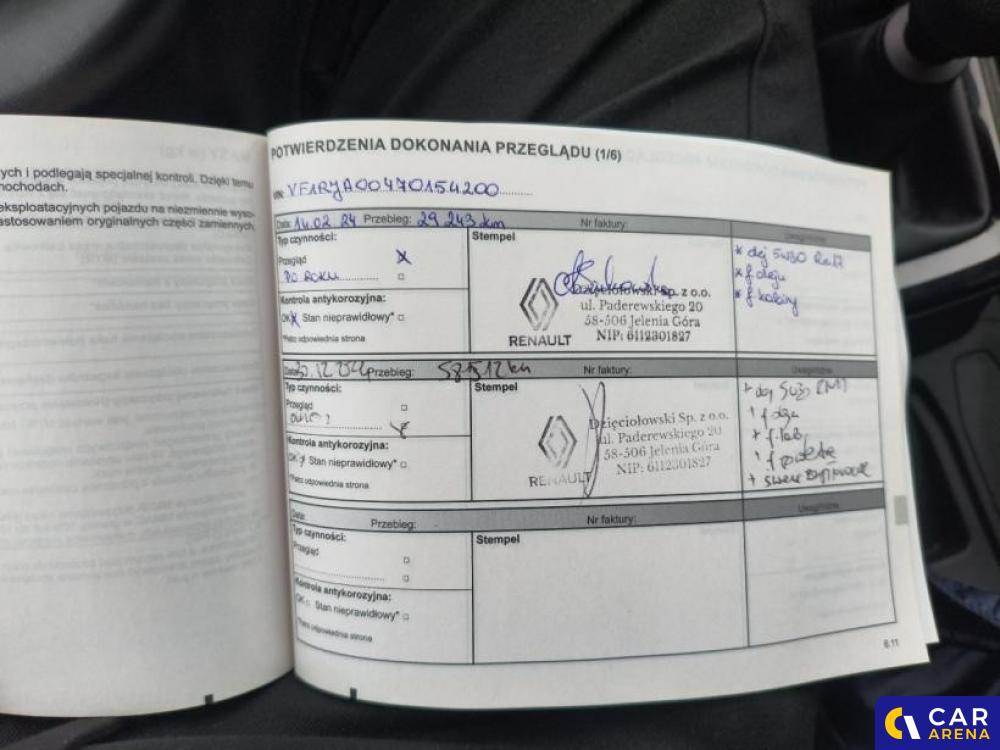 ych i podlegają specjalnej kontroli. Dzięki temu
nochodach.
eksploatacyjnych pojazdu na niezmiennie wyso-
astosowaniem oryginalnych części zamiennych,
POTWIERDZENIA DOKONANIA PRZEGLĄDU (1/6)
VIN: VF1RJA00470154200
Data: 14.02.24 Przebieg: 29 243 km Nr faktury: Uwagi/notatki
Typ czynności:
Stempel
Przegląd
PO ROKU
Kontrola antykorozyjna:
OK Stan nieprawidłowy*
*Patrz odpowiednia strona
RENAULT
Dzięciołowski Sp. z o.o.
ul. Paderewskiego 20
58-506 Jelenia Góra
NIP: 6112301827
* olej 5W30
* f. oleju
* f. kabiny
Data: 30.12.2024 Przebieg: 58512 km Nr faktury:
Typ czynności:
Stempel
Przegląd
Kontrola antykorozyjna:
OK Stan nieprawidłowy*
*Patrz odpowiednia strona
RENAULT
Dzięciołowski Sp. z o.o.
ul. Paderewskiego 20
58-506 Jelenia Góra
NIP: 6112301827
+ olej 5W30
f. oleju
+ f. kab
Data: Przebieg: Nr faktury:
Typ czynności:
Stempel
Przegląd
Kontrola antykorozyjna:
OK Stan nieprawidłowy*
*Patrz odpowiednia strona
6.11
CAR
ARENA